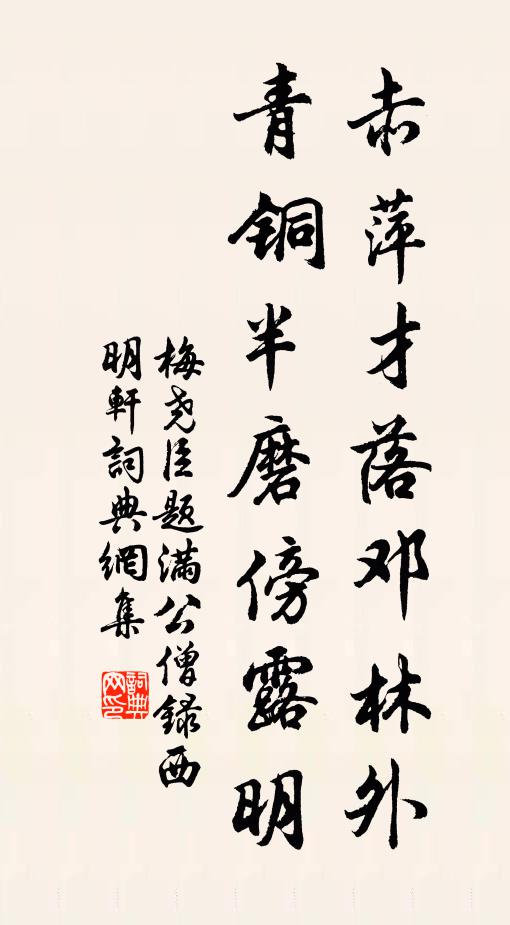 赤萍才落邓林外
青铜半磨傍露明
梅尧臣题满公僧録西
明軒詞典網集
詞典網印